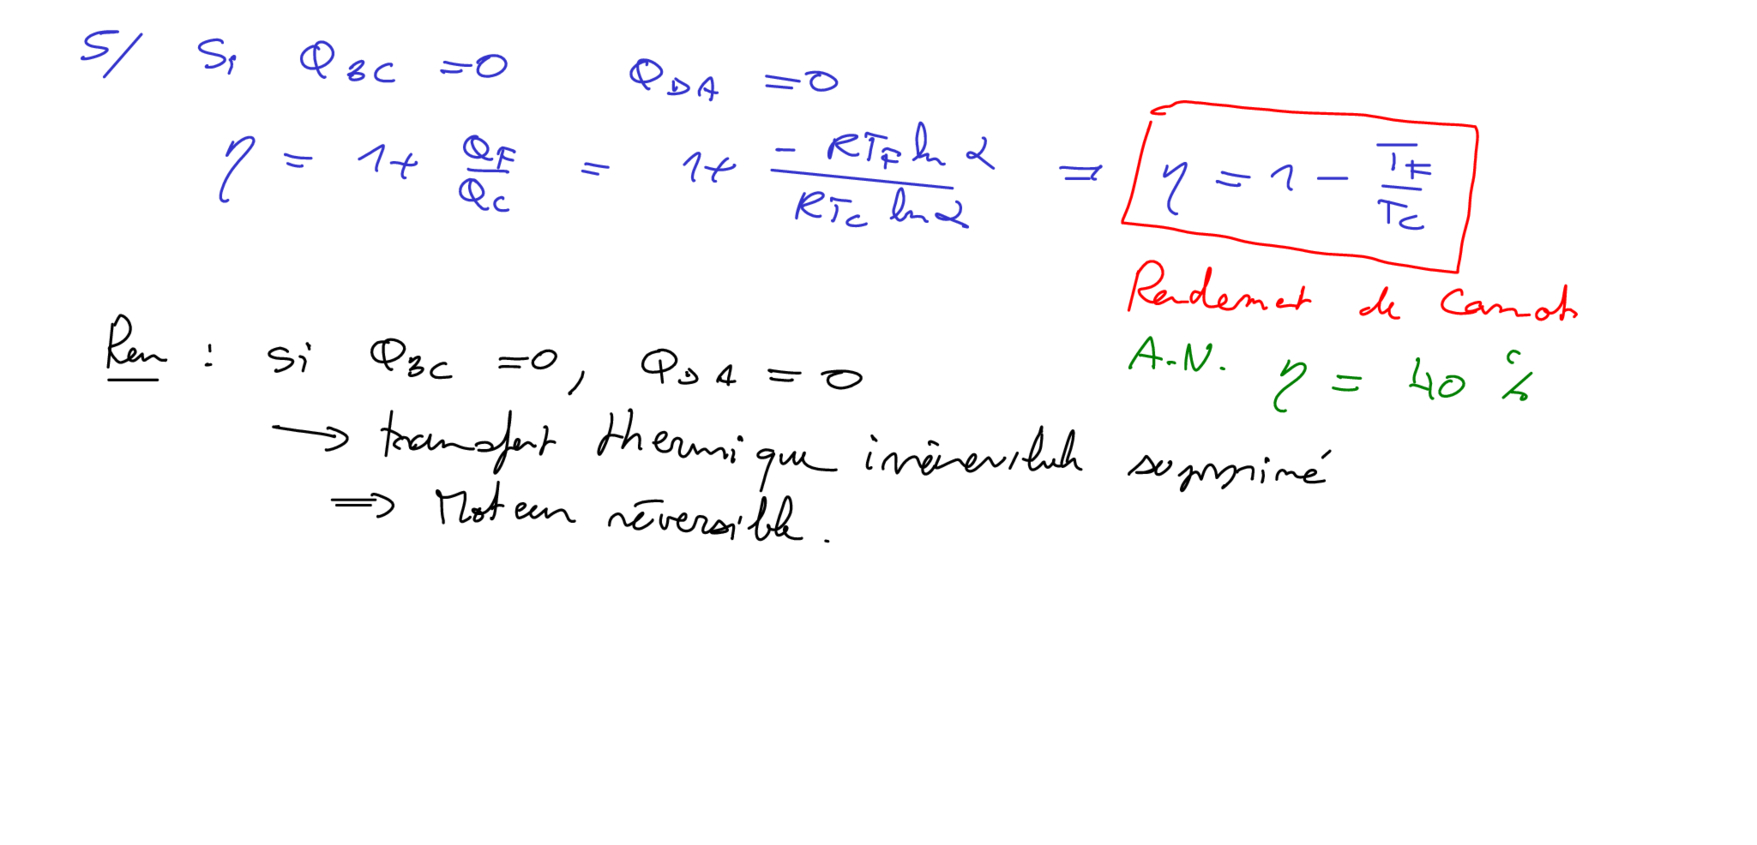 5/ Si Q_BC = 0 Q_DA = 0
η = 1 + Q_F/Q_C = 1 + (- R T_F ln α)/(R T_C ln α) = η = 1 - T_F/T_C
Rendement de Carnot
A.N. η = 40 %
Rem : si Q_BC = 0, Q_DA = 0
→ transfert thermique irréversible supprimé
⇒ Moteur réversible.